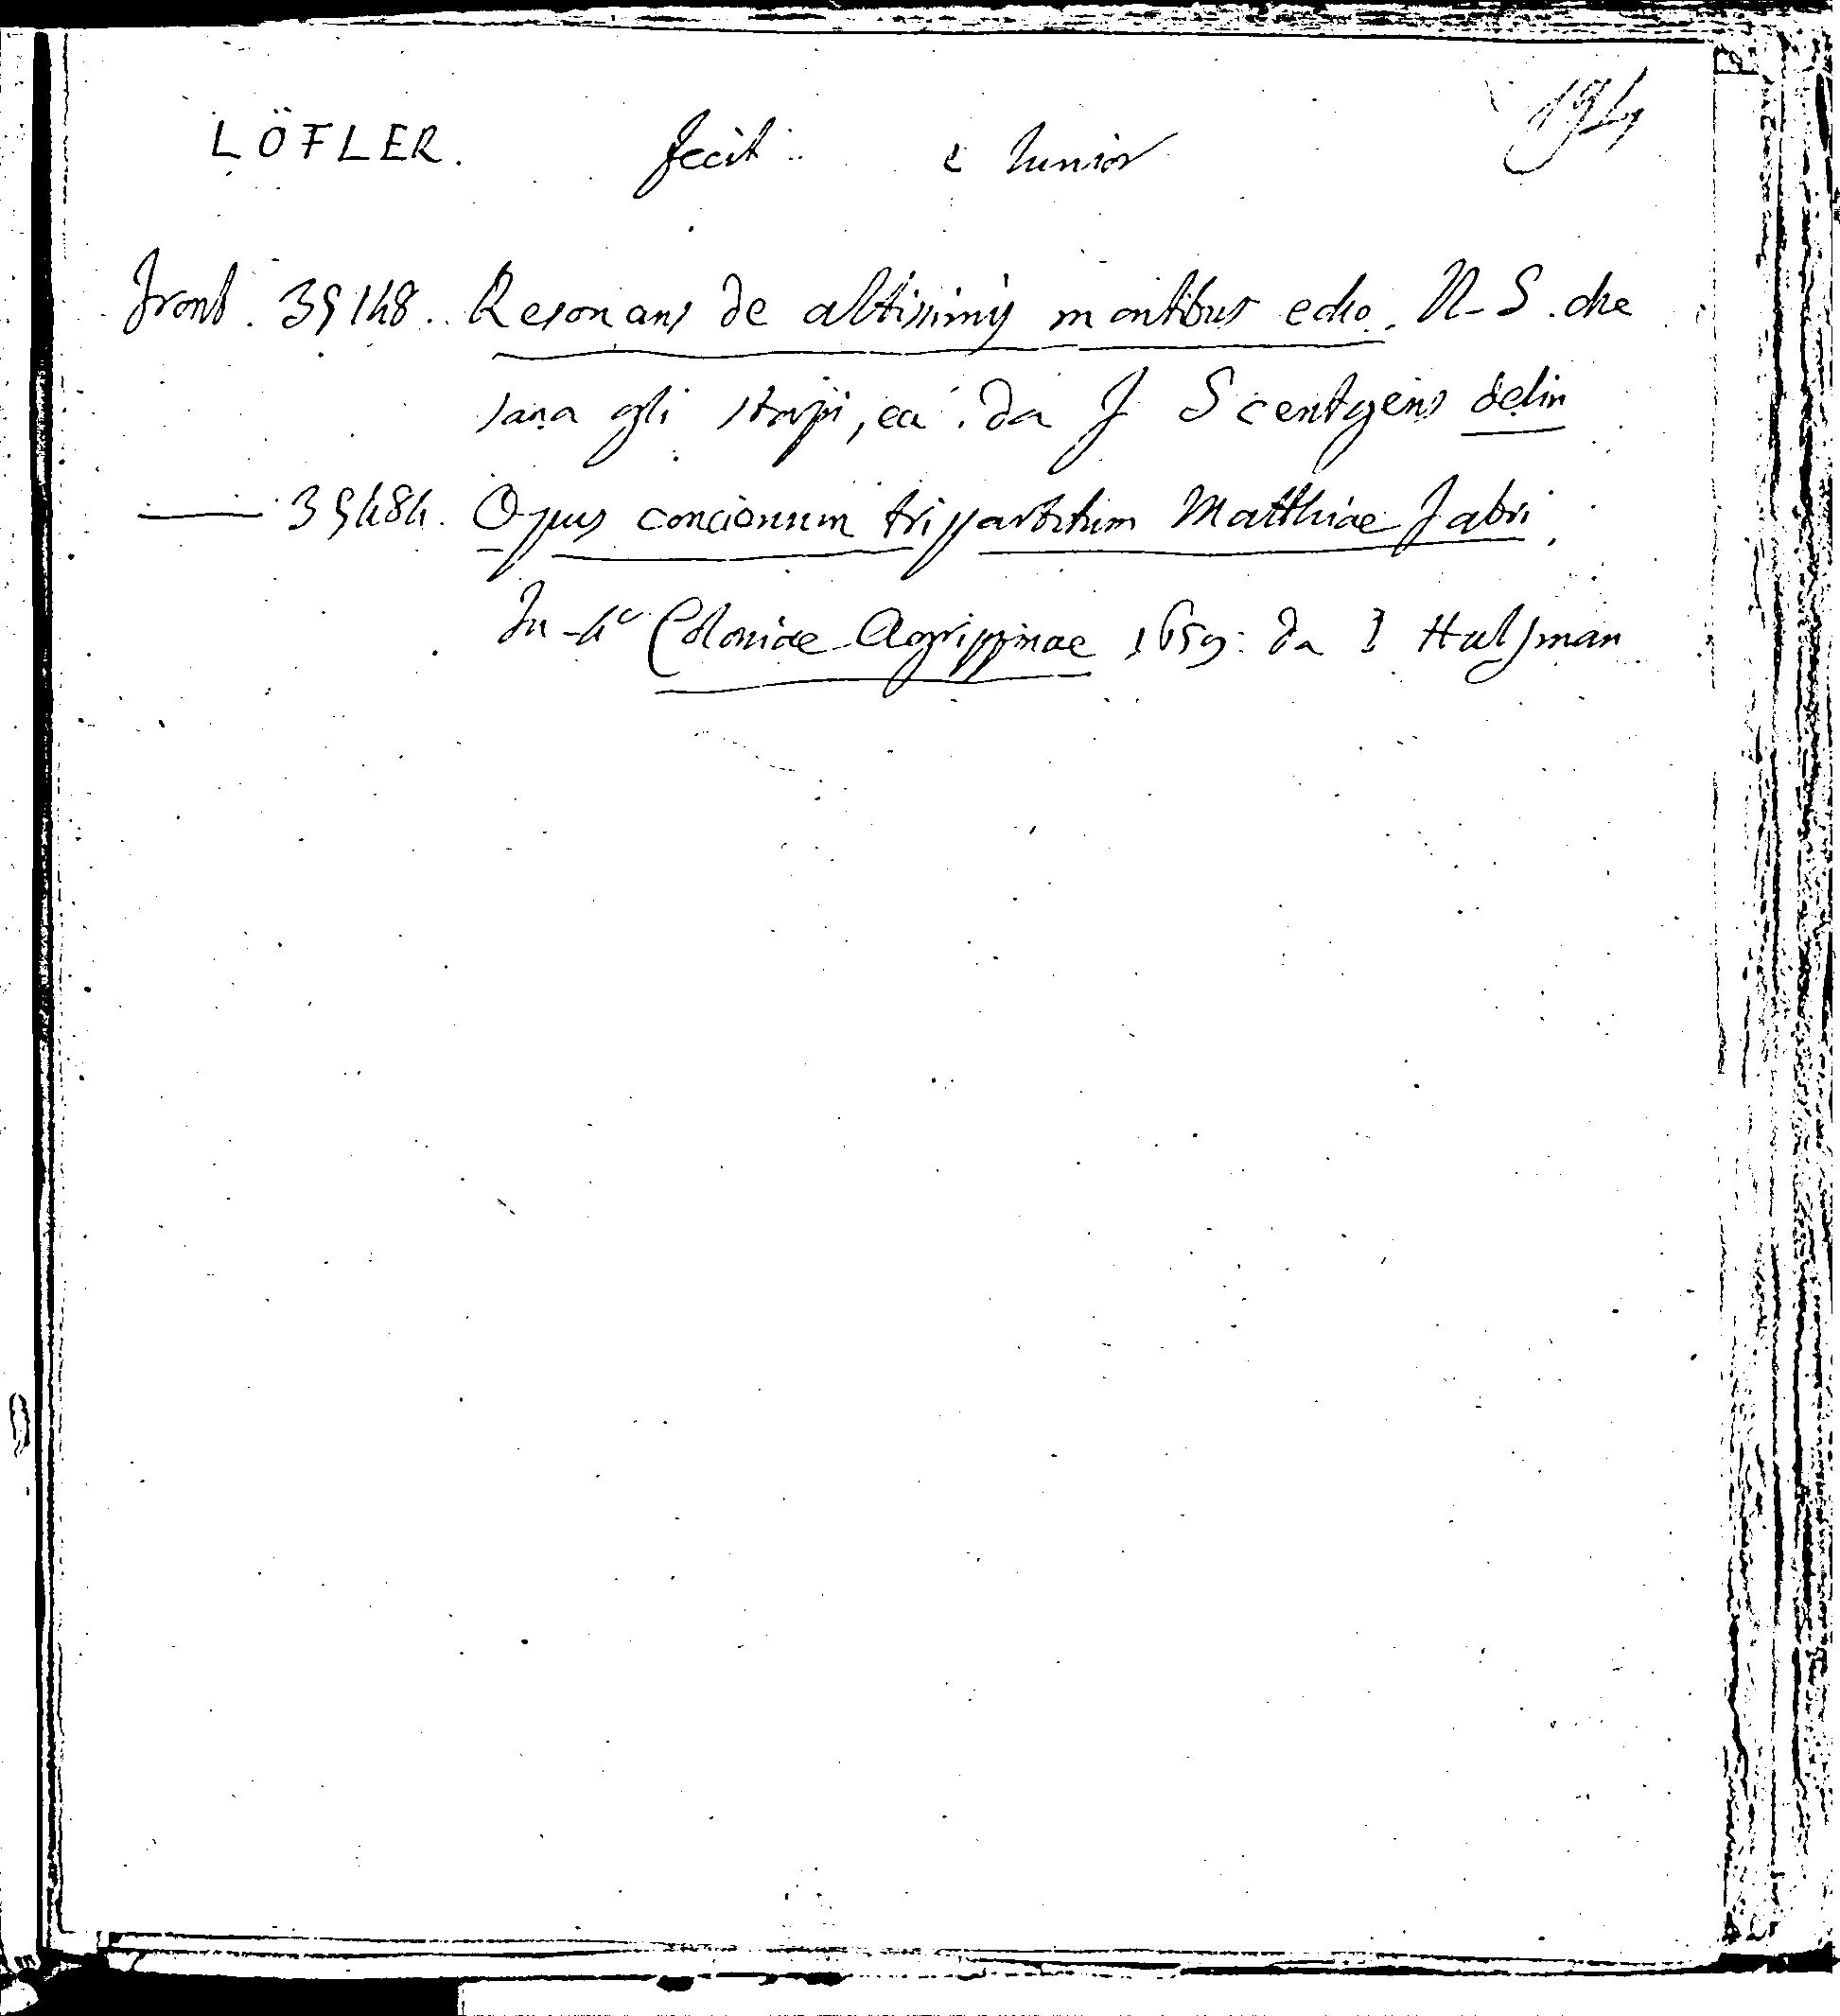 LÖFLER. fecit e Iunior 194
Front. 39148. Resonans de altissimis montibus echo. N-S. che
sana gli storpi, ec. da J Scentgens delin
—— 39484. Opus concionum tripartitum Matthiae Fabri.
In-4º Coloniae Agrippinae 1659: da I Hulsman